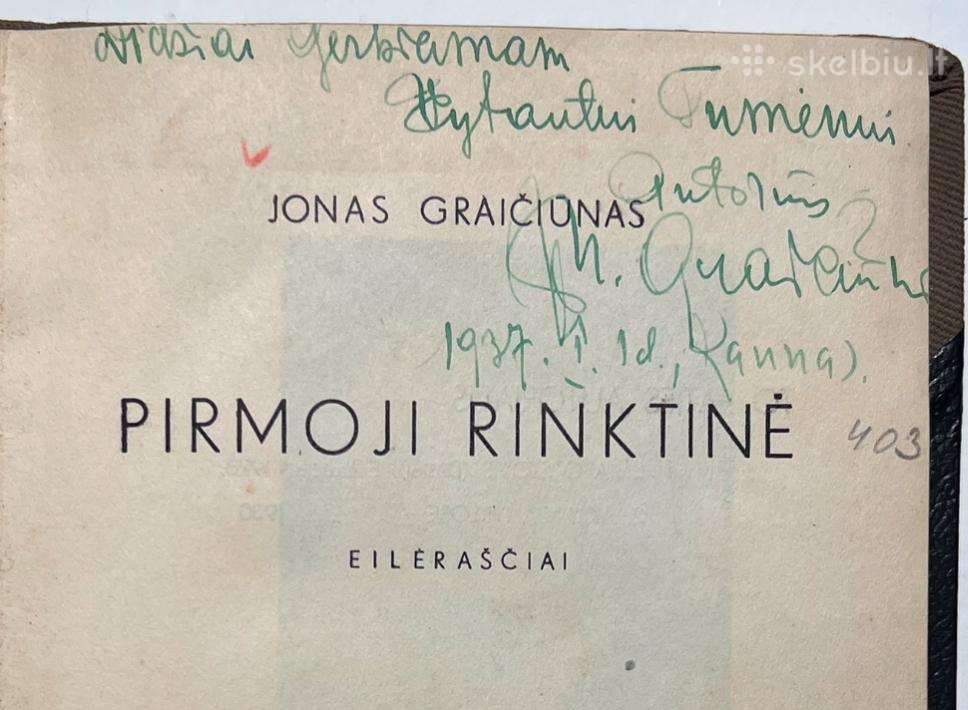 Didžiai Gerbiamam
skelbiu.lt
Vytautui Tumėnui
Autorius
JONAS GRAIČIŪNAS
J. Graičiūnas
1937. I. 1d., Kaunas.
PIRMOJI RINKTINĖ
403
EILĖRAŠČIAI